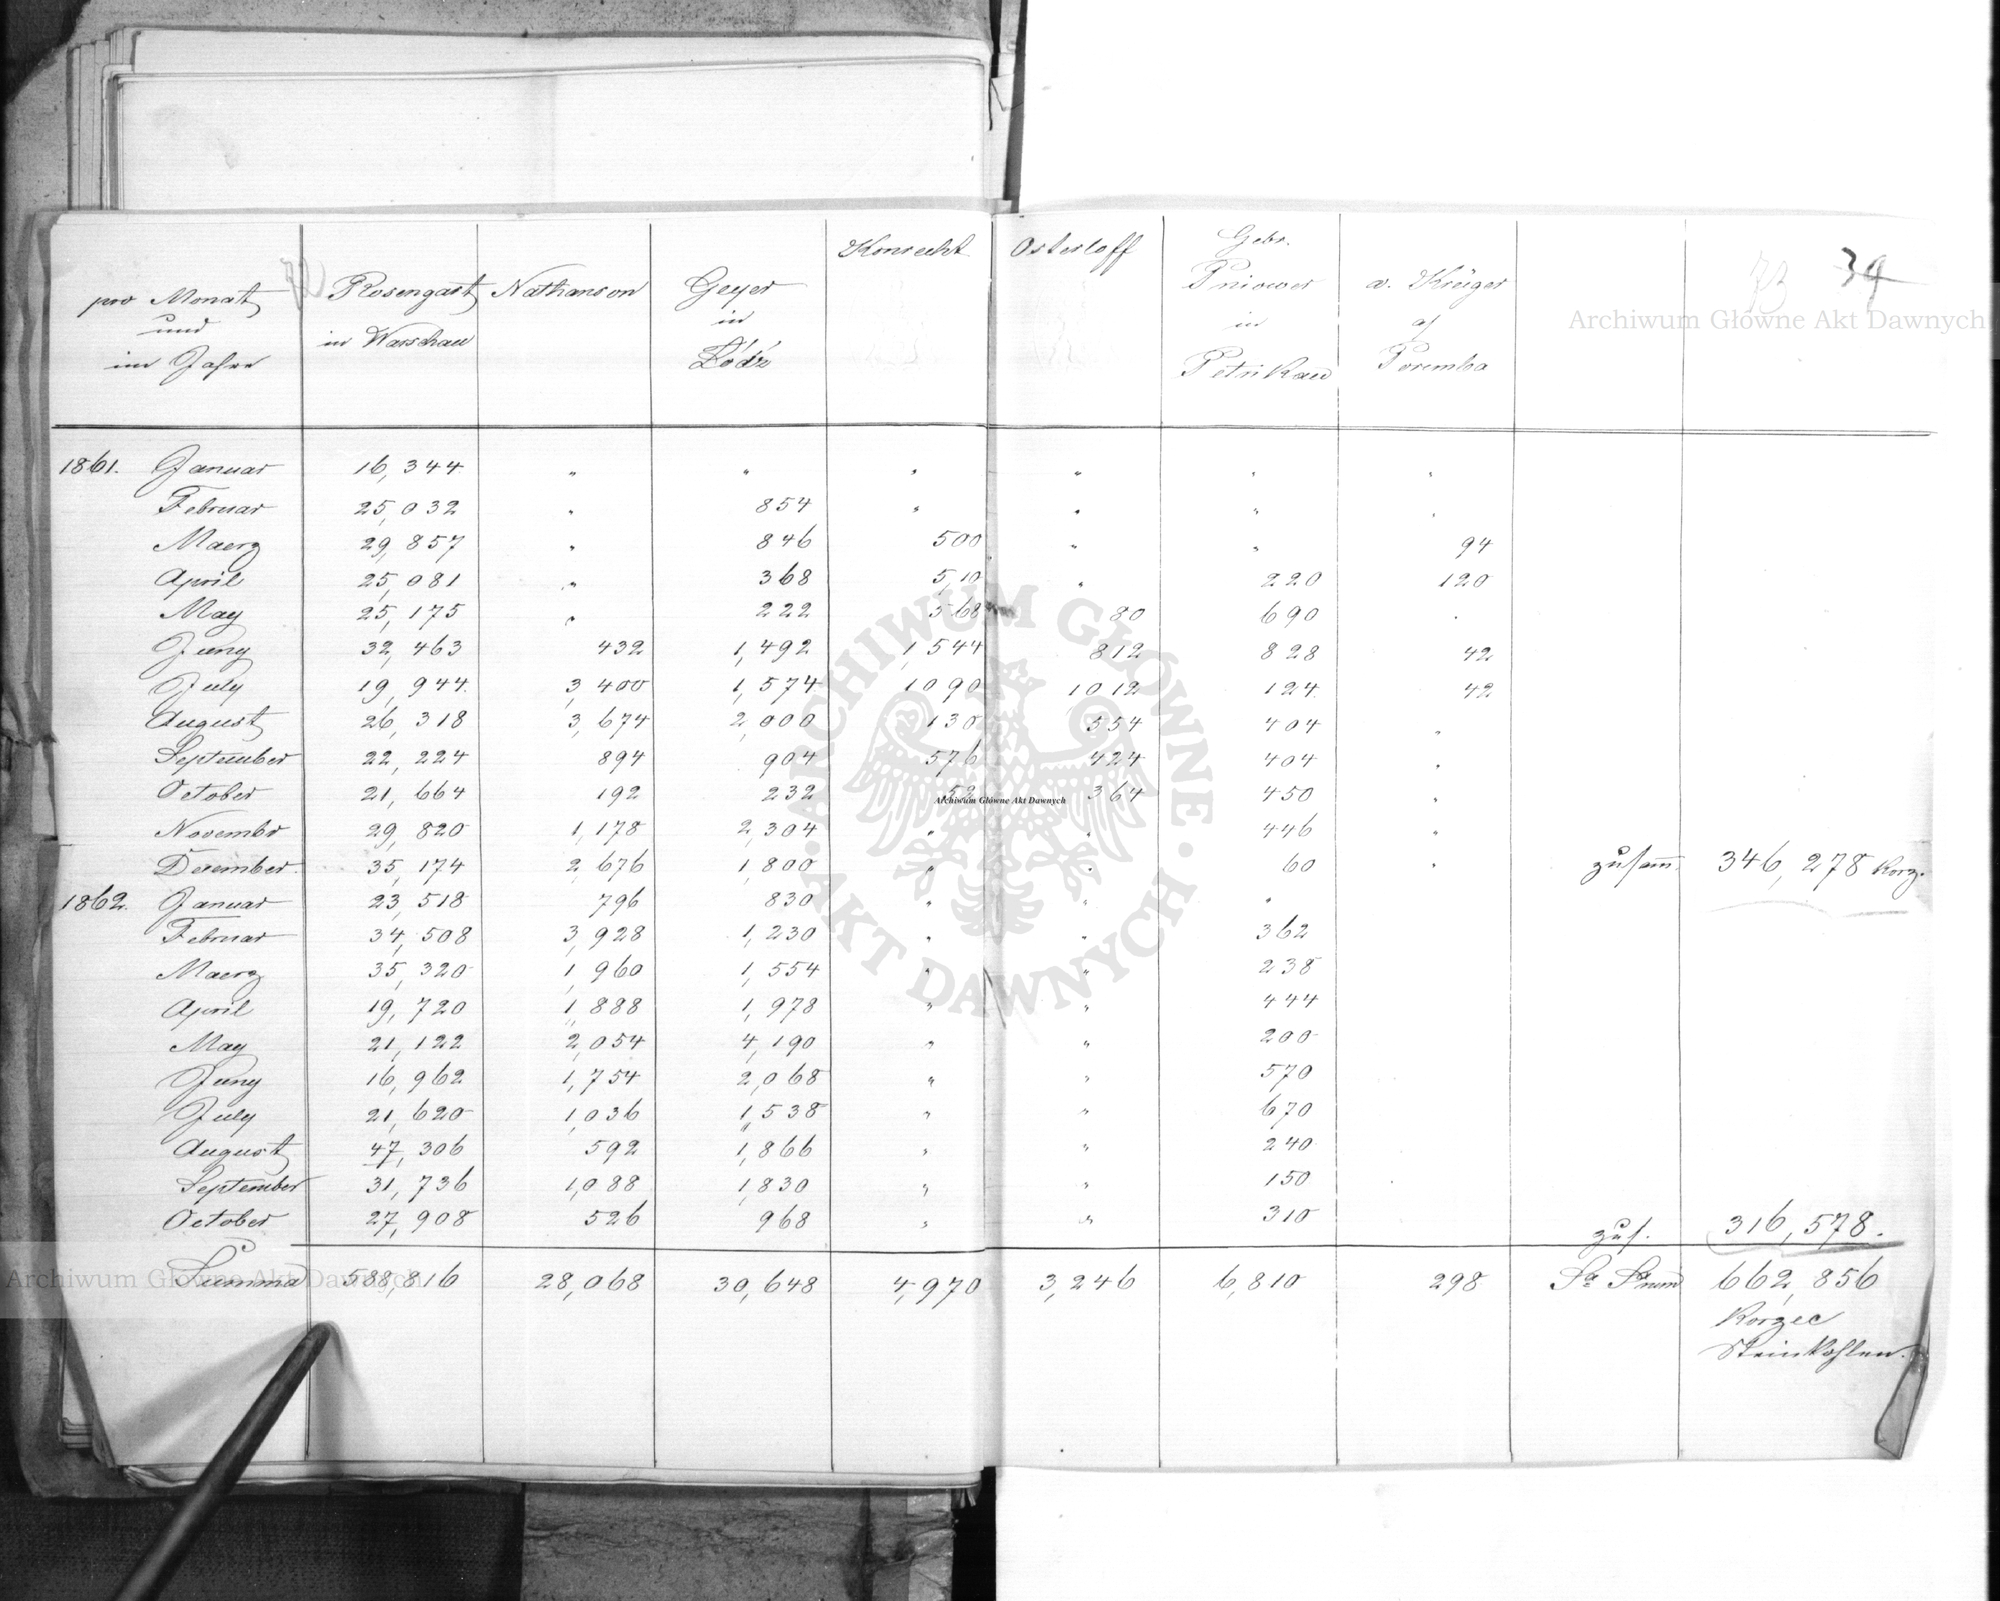 pro Monat und im Jahre | Rosengart in Warschau | Nathanson | Geyer in Łódź | Konrecht | Osterloff | Gebr. Pniower in Petrikau | v. Krüger a/ Poremba
39
73
1861. Januar 16,344 " " " " " "
Februar 25,032 " 854 " " " "
Maerz 29,857 " 846 500 " " 94
April 25,081 " 368 510 " 220 120
May 25,175 " 222 568 80 690 .
Juny 32,463 432 1,492 1,544 812 828 42
July 19,944 3,400 1,574 1090 1012 124 42
August 26,318 3,674 2,000 130 554 404 "
September 22,224 894 904 576 424 404 "
October 21,664 192 232 52 364 450 "
Novembr 29,820 1,178 2,304 " " 446 "
December 35,174 2,676 1,800 " " 60 " zusam. 346,278 Korz.
1862. Januar 23,518 796 830 " " "
Februar 34,508 3,928 1,230 " " 362
Maerz 35,320 1,960 1,554 " " 238
April 19,720 1,888 1,978 " " 444
May 21,122 2,054 4,190 " " 200
Juny 16,962 1,754 2,068 " " 570
July 21,620 1,036 1,538 " " 670
August 47,306 592 1,866 " " 240
September 31,736 1,088 1,830 " " 150
October 27,908 526 968 " " 310 zus. 316,578.
Summa 588,816 28,068 30,648 4,970 3,246 6,810 298 Sa 662,856
Korzec
Steinkohlen.
Archiwum Główne Akt Dawnych
Archiwum Główne Akt Dawnych
Archiwum Główne Akt Dawnych
ARCHIWUM GŁÓWNE · AKT DAWNYCH ·